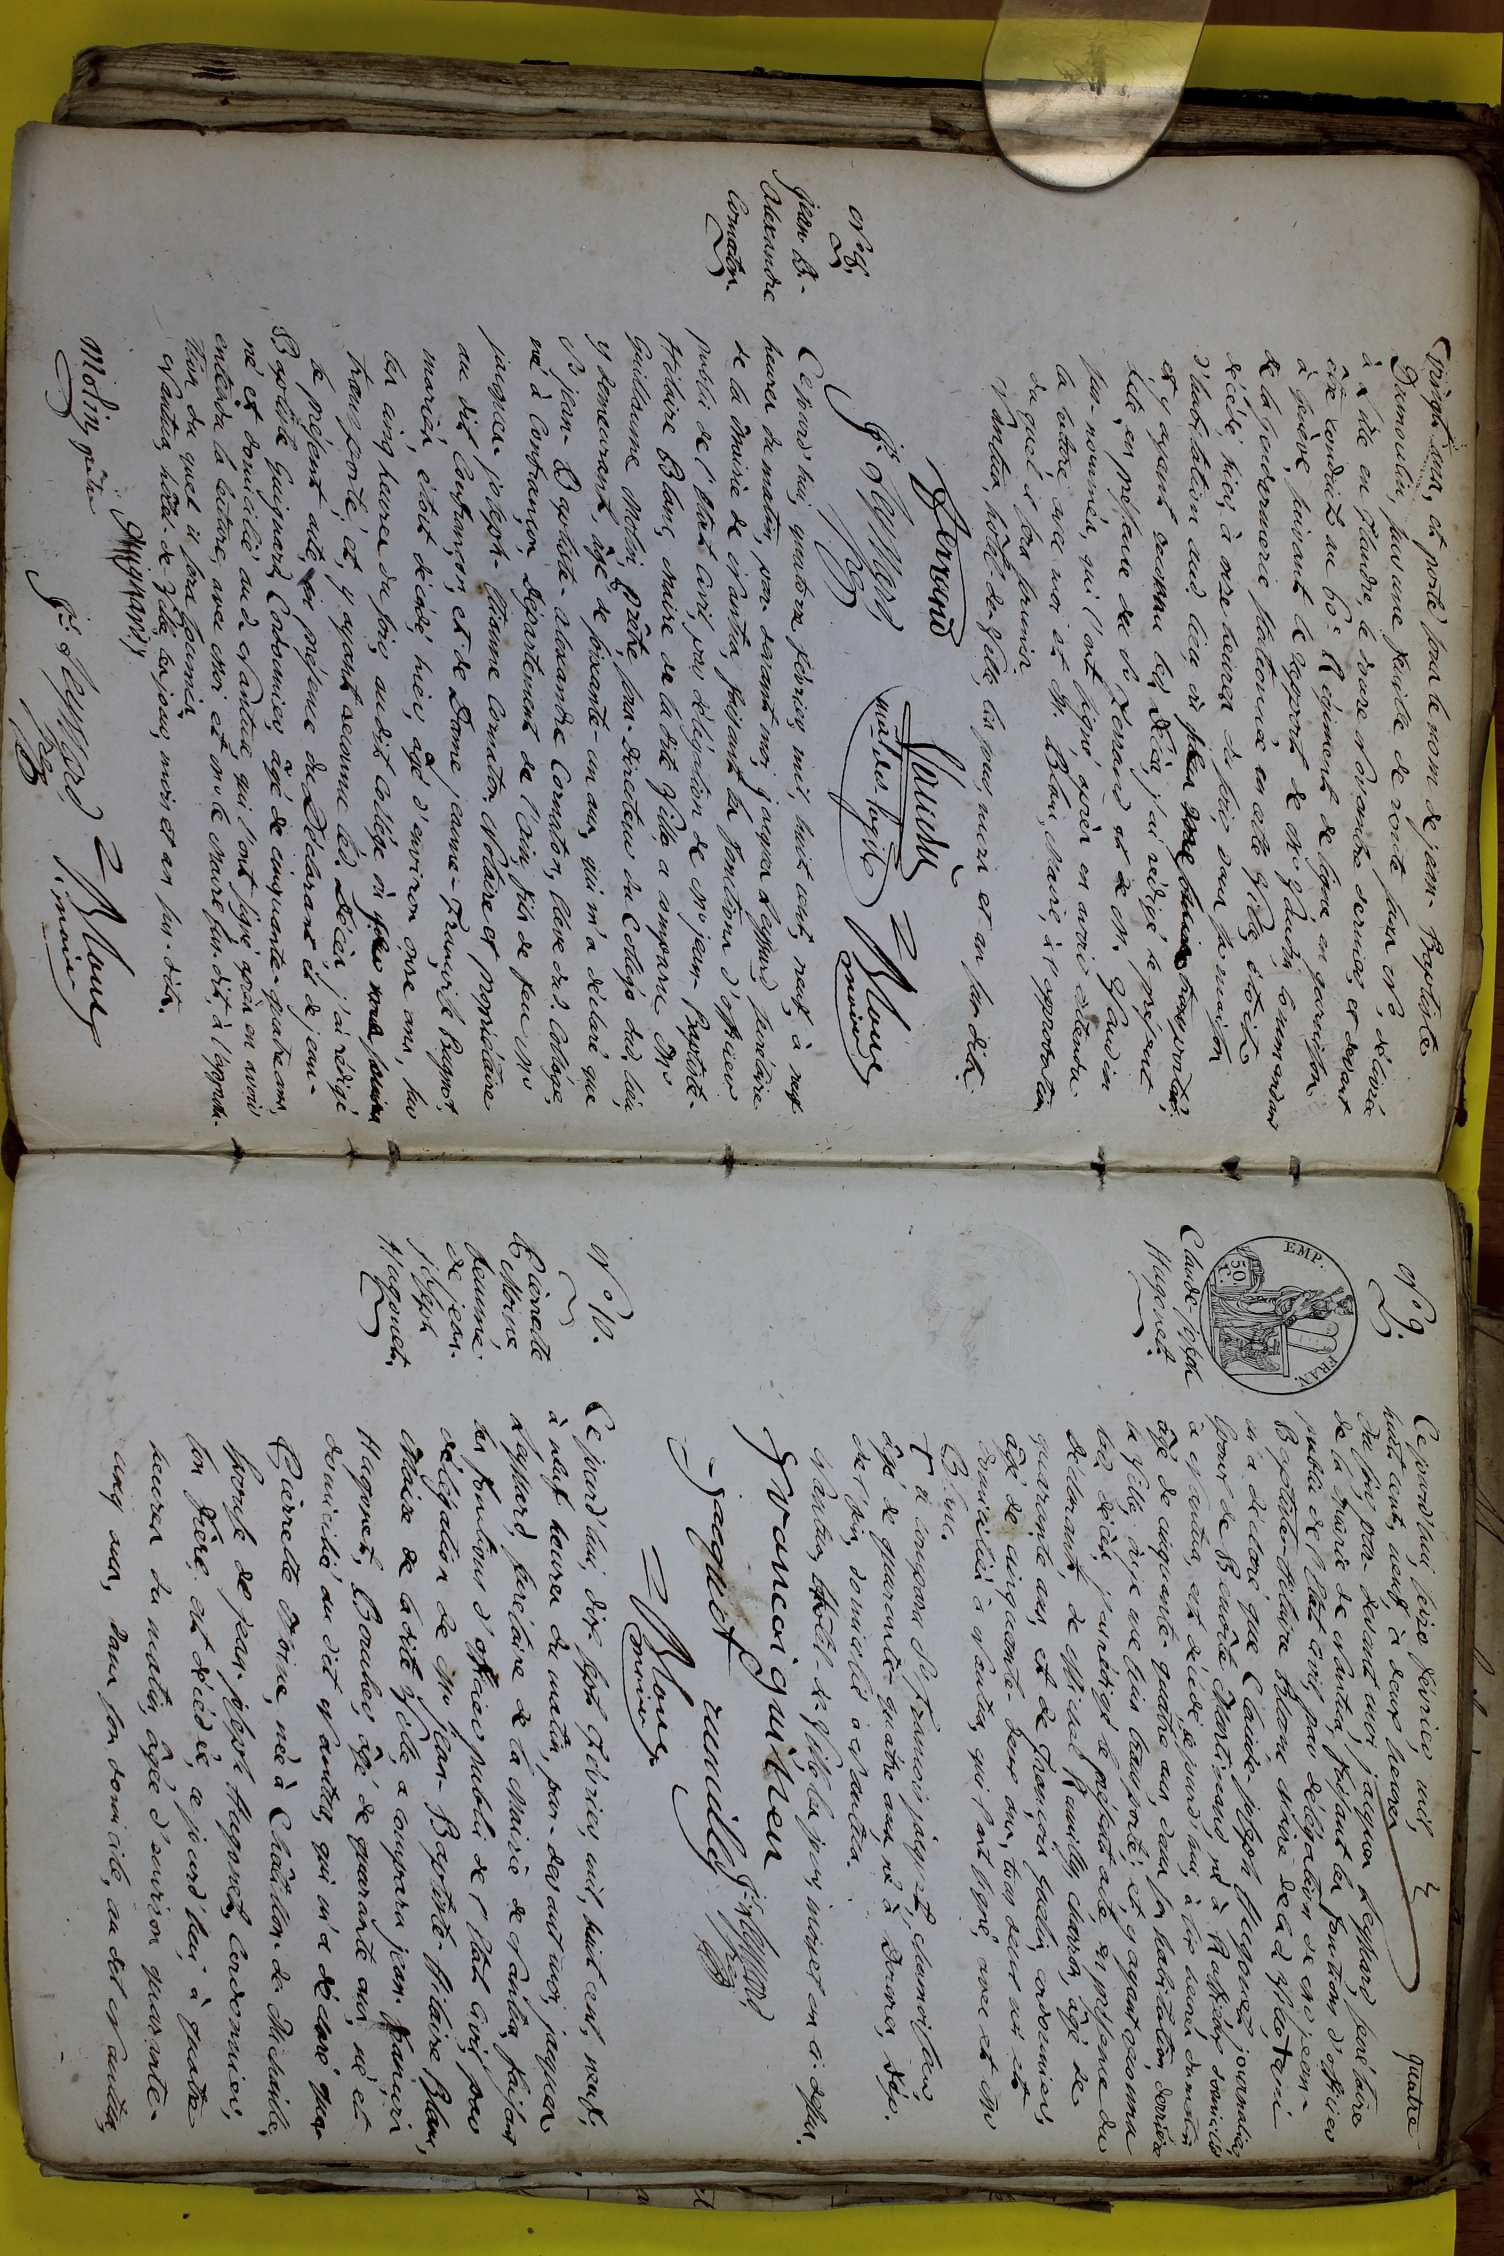 Vingt-deux, est porté sous le nom de jean-Baptiste
Dumoulin, sur une feuille de route sous N.º, délivrée
à Lille en Flandre, le Novembre dernier, et devant
être conduit au 60.e Régiment de ligne en garnison
à genève, suivant le rapport de M.r gaudin, Commandant
de la gendarmerie stationnée en cette ville, étoit
décédé, hier, à onze heures du soir, dans sa maison
d'habitation aud. lieu, où transporté,
et y ayant reconnu led. Décès, j'ai rédigé le présent
acte, en présence du d. ferrand et de M. gaudin
sus-nommés, qui l'ont signé après en avoir entendu
la lecture avec moi et M. Blanc, Maire, à l'approbation
duquel il sera soumis.
Nantua, hôtel-de-ville, les jour, mois et an sus dits.
ferrand
gaudin
m.al des logis
J.s Reymard
Blanc
maire
N.º 8.
Jean B.-
Alexandre
Cornaton.
Ce jourd'hui, quatorze février, mil, huit cent, neuf, à neuf
heures du matin, par-devant moi, jacques Reymard, secrétaire
de la Mairie de Nantua, faisant les fonctions d'officier
public de l'État civil, par délégation de M.r jean-Baptiste-
Hilaire Blanc, Maire de la dite Ville, a comparu M.r
Guillaume Molin, prêtre, sous-Directeur du Collège dud. lieu,
y demeurant, âgé de soixante-un ans, qui m'a déclaré que
S.r jean-Baptiste-alexandre Cornaton, élève dud. Collège,
né à Confrançon, Département de l'Ain, fils de feu M.r
jacques-joseph-Étienne Cornaton, Notaire et propriétaire
au dit Confrançon, et de Dame jeanne-Françoise Bugnot,
mariés, étoit décédé hier, âgé d'environ onze ans, sur
les cinq heures du soir, audit Collège où
transporté, et y ayant reconnu led. Décès j'ai rédigé
le présent acte, en présence du Déclarant et de jean-
Baptiste Guignard, Cordonnier, âgé de cinquante-quatre ans,
né et domicilié aud. Nantua, qui l'ont signé, après en avoir
entendu la lecture, avec moi et M.r le Maire sus-dit, à l'approba-
tion du quel il sera soumis.
Nantua, hôtel-de-Ville, les jour, mois et an sus-dits.
Molin, prêtre
Guignard
J.s Reymard
Blanc
maire
quatre
N.º 9.
EMP. FRAN.
50 C.
Claude-joseph
Hugonet.
Ce jourd'hui, seize février, mil,
huit cent, neuf, à deux heures
du soir, par-devant moi, jacques Reymard, secrétaire
de la Mairie de Nantua, faisant les fonctions d'officier
public de l'État civil, par délégation de M.r jean-
Baptiste-Hilaire Blanc Maire de la d. Ville +
m'a déclaré que Claude-joseph Hugonet, journalier,
époux de Benoîte Martinand, né à domicilié
à Nantua, est décédé, ce jourd'hui, à dix heures du matin
âgé de cinquante-quatre ans, dans son habitation derrière
la Ville, où je me suis transporté; et, y ayant reconnu
led. décès, j'ai rédigé le présent acte, en présence du
déclarant, de Michel Rumilley, charron, âgé de
quarante ans, et de François guelin, cordonnier,
âgé de cinquante-deux ans, tous deux nés et
domiciliés à Nantua, qui l'ont signé, avec et M.r
Blanc.
+ a comparu S.r françois jacquiot, chamoiseur,
âgé de quarante-quatre ans, né à Dép.
de l'ain, domicilié à Nantua.
Nantua, hôtel-de-Ville les jour, mois et an ci dessus.
françois guelien
jacquiot
rumilley
J.s Reymard
Blanc
maire
N.º 10.
Pierrette
Moine
femme
de jean-
joseph
Hugonet.
Ce jourd'hui, dix sept février, mil, huit cent, neuf,
à neuf heures du matin, par-devant moi, jacques
Reymard, secrétaire de la Mairie de Nantua, faisant
les fonctions d'officier public de l'État civil, par
délégation de M.r jean-Baptiste-Hilaire Blanc,
Maire de la dite Ville, a comparu jean-
Hugonet, Boucher, âgé de quarante ans, né et
domicilié au dit Nantua, qui m'a déclaré que
Pierrette Moine, née à Châtillon-de-Michaille,
épouse de jean-joseph Hugonet, Cordonnier,
son frère, est décédée, ce jourd'hui, à quatre
heures du matin, âgée d'environ quarante-
cinq ans, dans son domicile, au dit Nantua,